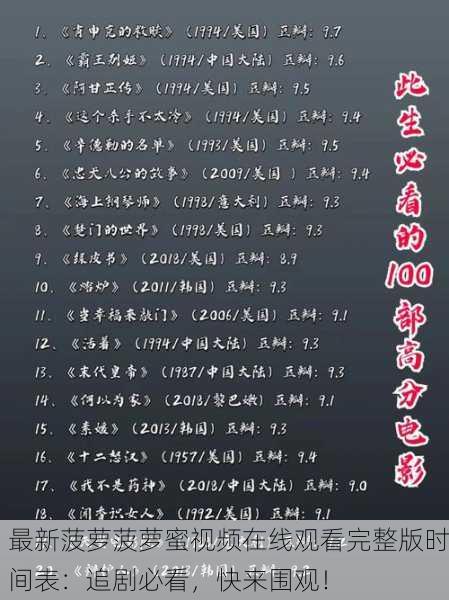 1、《肖申克的救赎》（1994/美国）豆瓣：9.7
2、《霸王别姬》（1994/中国大陆）豆瓣：9.6
3、《阿甘正传》（1994/美国）豆瓣：9.5
4、《这个杀手不太冷》（1994/美国）豆瓣：9.4
5、《辛德勒的名单》（1993/美国）豆瓣：9.5
6、《忠犬八公的故事》（2009/美国 ）豆瓣：9.4
7、《海上钢琴师》（1998/意大利）豆瓣：9.3
8、《楚门的世界》（1998/美国）豆瓣：9.3
9、《绿皮书》（2018/美国）豆瓣：8.9
10、《熔炉》（2011/韩国）豆瓣：9.3
11、《当幸福来敲门》（2006/美国）豆瓣：9.1
12、《活着》（1994/中国大陆）豆瓣：9.3
13、《末代皇帝》（1987/中国大陆）豆瓣：9.3
14、《何以为家》（2018/黎巴嫩）豆瓣：9.1
15、《素媛》（2013/韩国）豆瓣：9.3
16、《十二怒汉》（1957/美国）豆瓣：9.4
17、《我不是药神》（2018/中国大陆）豆瓣：9.0
18、《闻香识女人》（1992/美国）豆瓣：9.1
此生必看的100部高分电影
最新菠萝菠萝蜜视频在线观看完整版时
间表：追剧必看，快来围观！